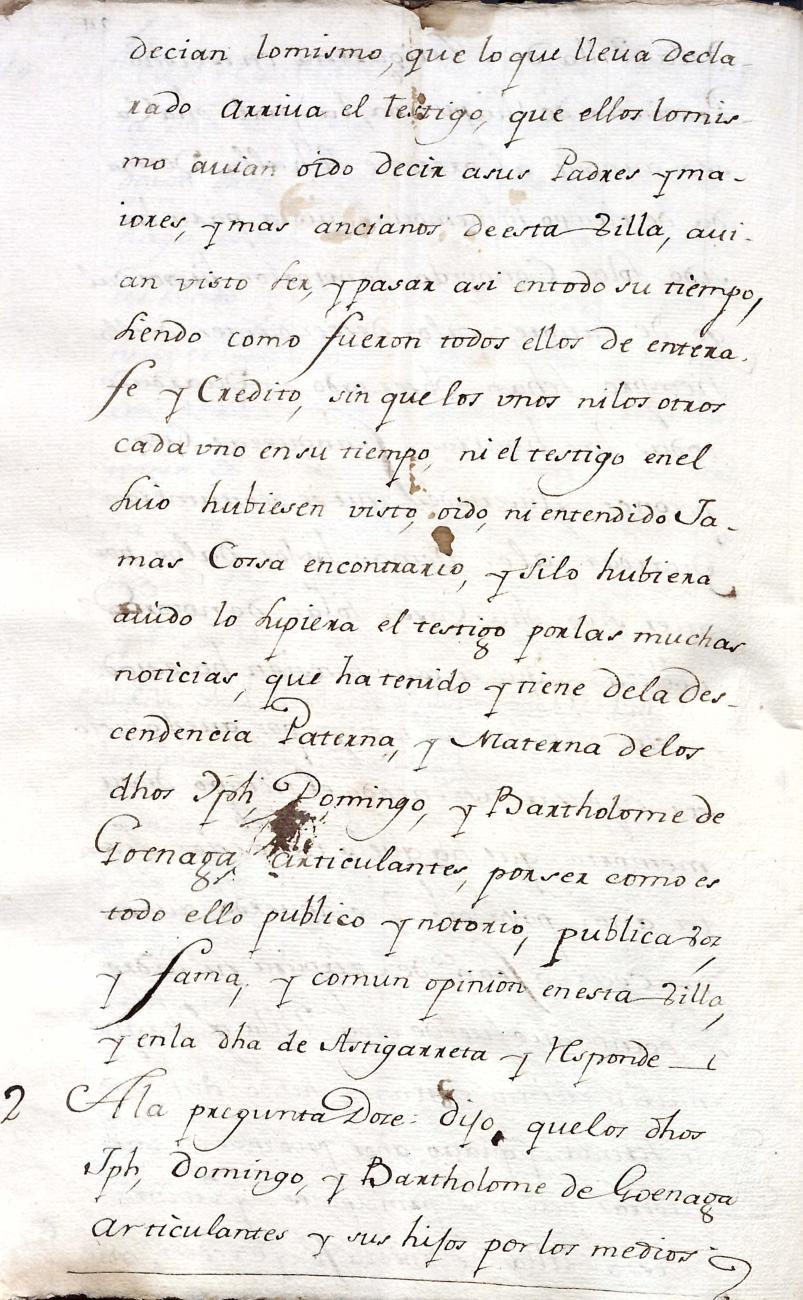 decian lomismo, que lo que lleva decla-
rado arriva el testigo, que ellos lomis-
mo avian oido decir asus Padres yma-
iores, ymas ancianos deesta Villa, avi-
an visto ser, ypasar asi entodo su tiempo,
siendo como fueron todos ellos de entera
fe y Credito, sin que los vnos nilos otros
cada vno ensu tiempo, ni el testigo enel
suio hubiesen visto, oido, ni entendido Ja-
mas Cossa encontrario, y silo hubiera
avido lo supiera el testigo porlas muchas
noticias, que ha tenido y tiene dela des-
cendencia Paterna, y Materna delos
dhos Jph, Domingo, y Bartholome de
Goenaga articulantes, porser como es
todo ello publico y notorio, publica voz,
y fama, y comun opinion enesta Villa,
y enla dha de Astigarreta y Responde
2 Ala pregunta Doze: dijo, quelos dhos
Jph, Domingo, y Bartholome de Goenaga
articulantes y sus hijos por los medios